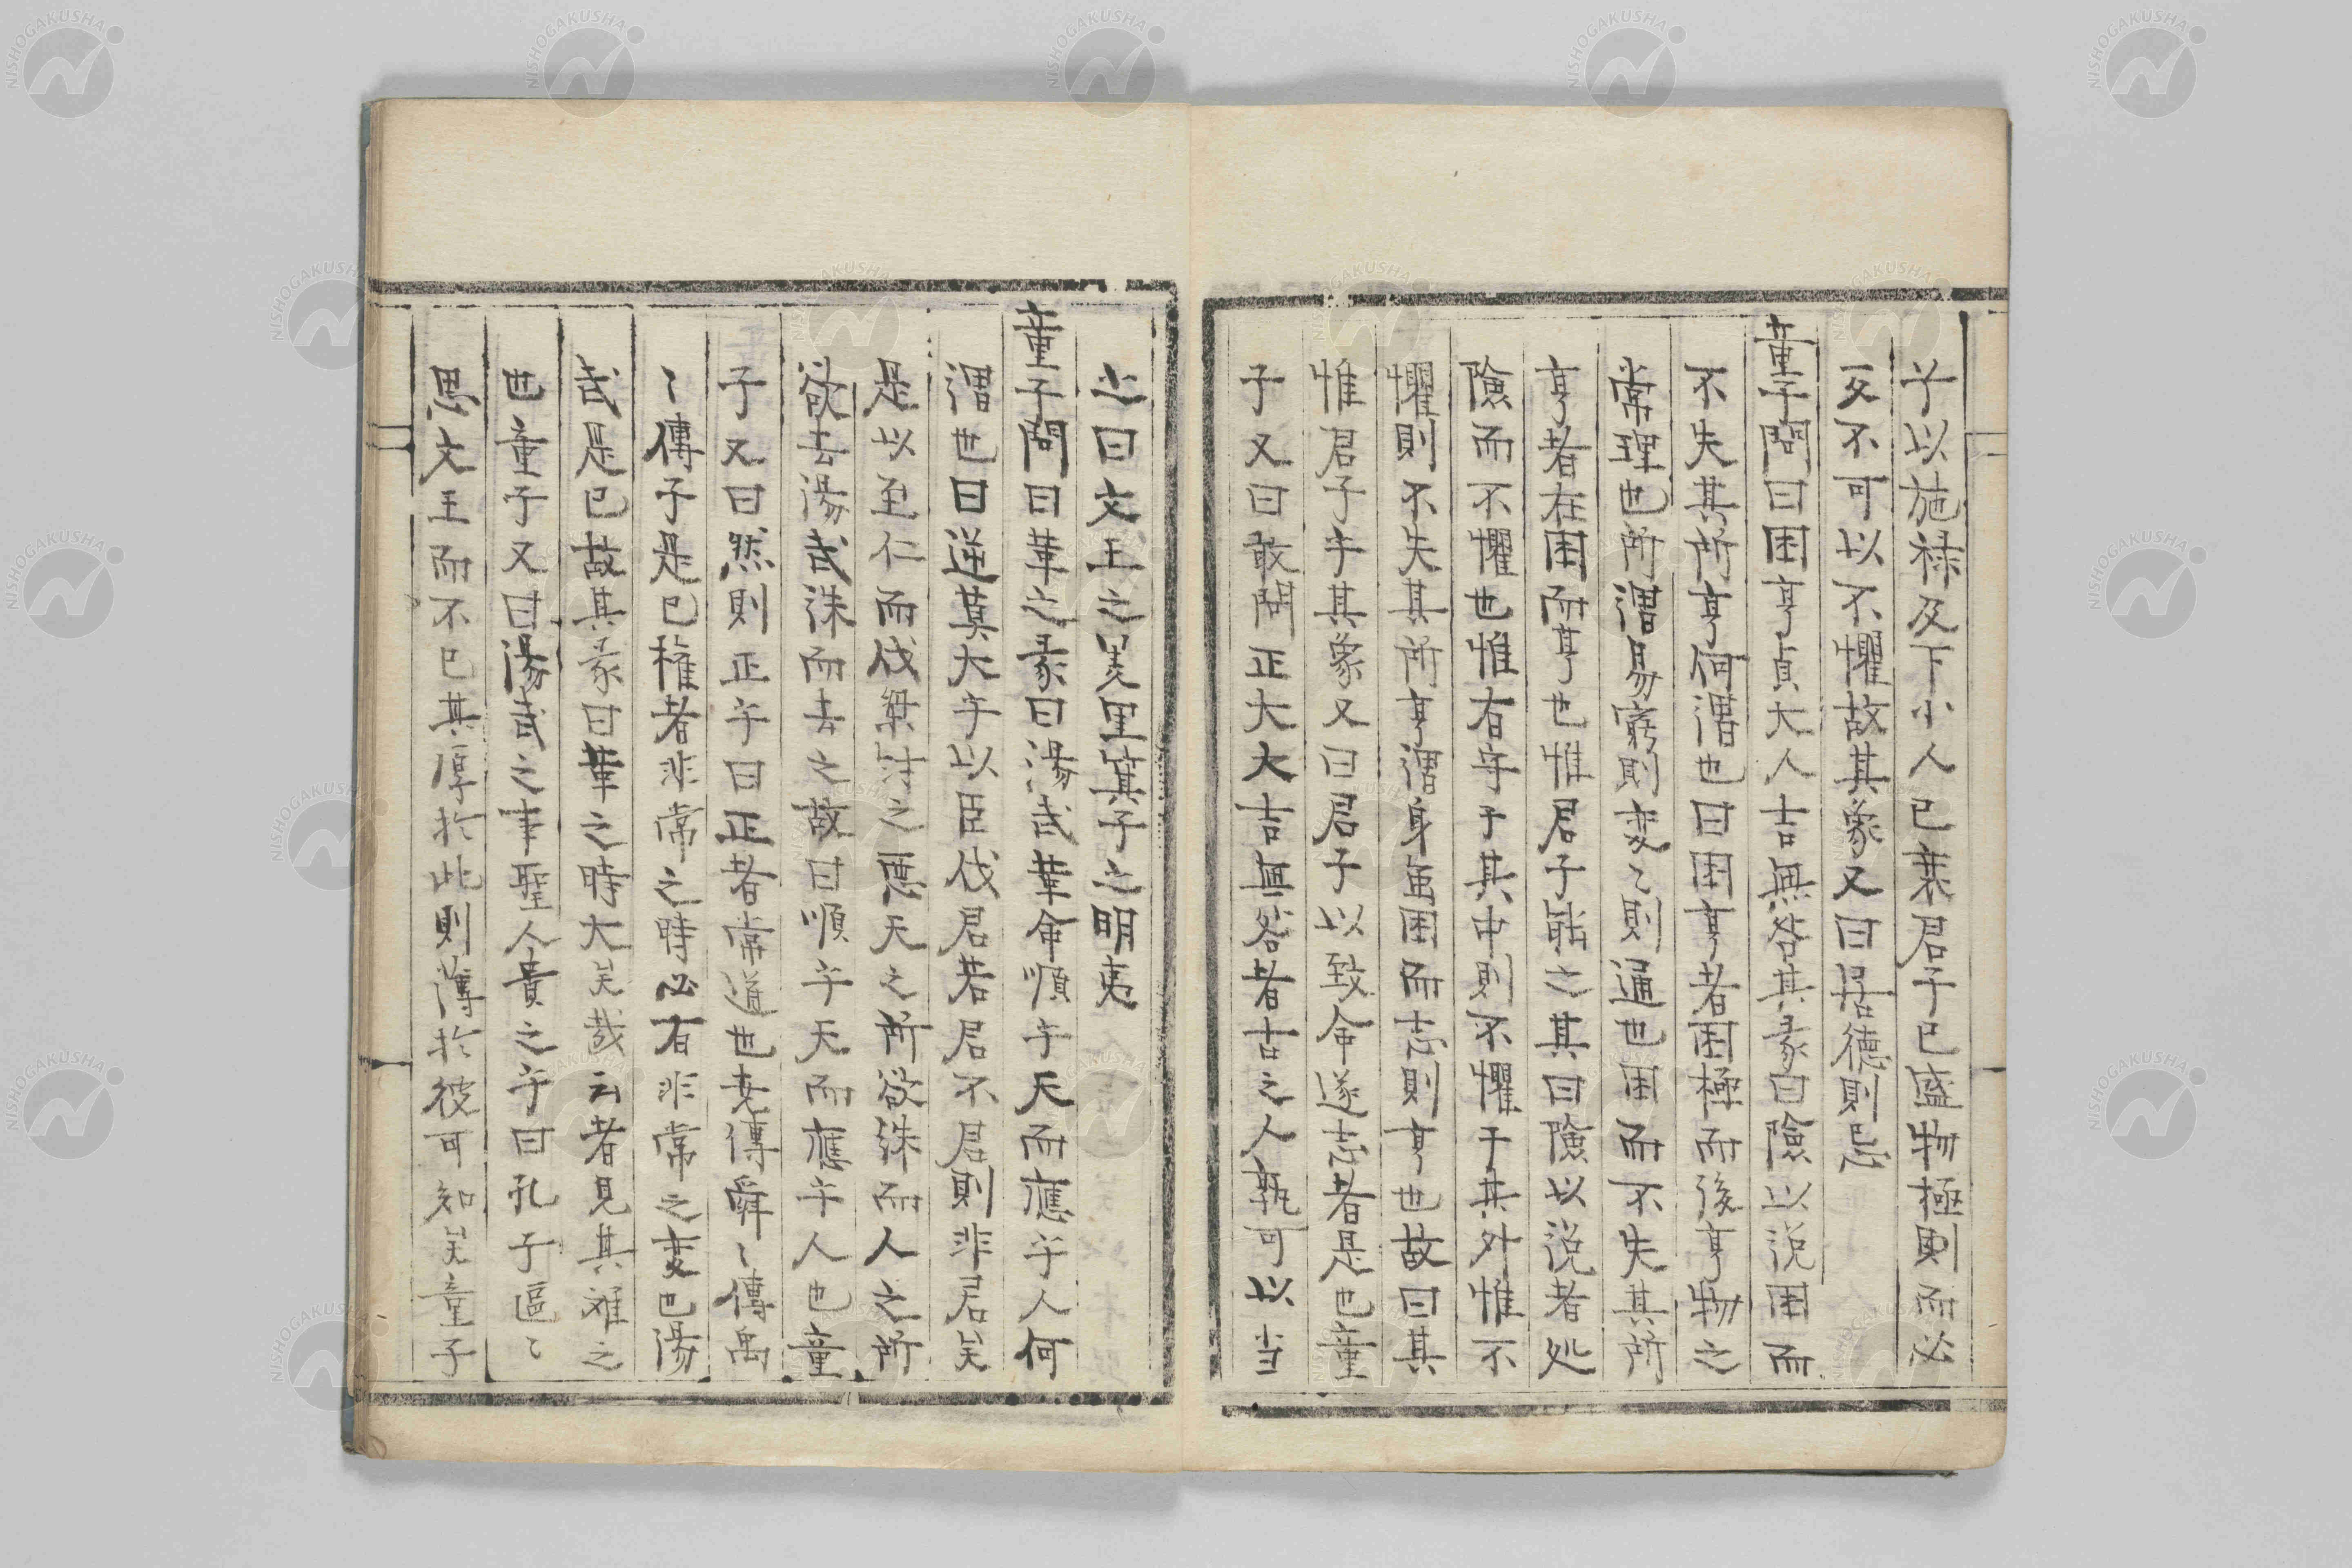 子以施禄及下小人已棄君子已盛物極則而必
反不可以不懼故其象又曰居德則忌
童子問曰困亨貞大人吉無咎其彖曰險以説困而
不失其所亨何謂也曰困亨者困極而後亨物之
常理也所謂易窮則変〻則通也困而不失其所
亨者在困而亨也惟君子能之其曰險以説者処
險而不懼也惟有守于其中則不懼于其外惟不
懼則不失其所亨謂身雖困而志則亨也故曰其
惟君子乎其象又曰君子以致命遂志者是也童
子又曰敢問正大大吉無咎者古之人孰可以当
之曰文王之羑里箕子之明夷
童子問曰革之彖曰湯武革命順乎天而應乎人何
謂也曰逆莫大乎以臣伐君若君不君則非君矣
是以至仁而伐桀紂之惡天之所欲誅而人之所
欲去湯武誅而去之故曰順乎天而應乎人也童
子又曰然則正乎曰正者常道也尭傳舜〻傳禹
〻傳子是已権者非常之時必有非常之変已湯
武是已故其彖曰革之時大矣哉云者見其難之
也童子又曰湯武之事聖人貴之乎曰孔子區〻
思文王而不已其厚於此則薄於彼可知矣童子